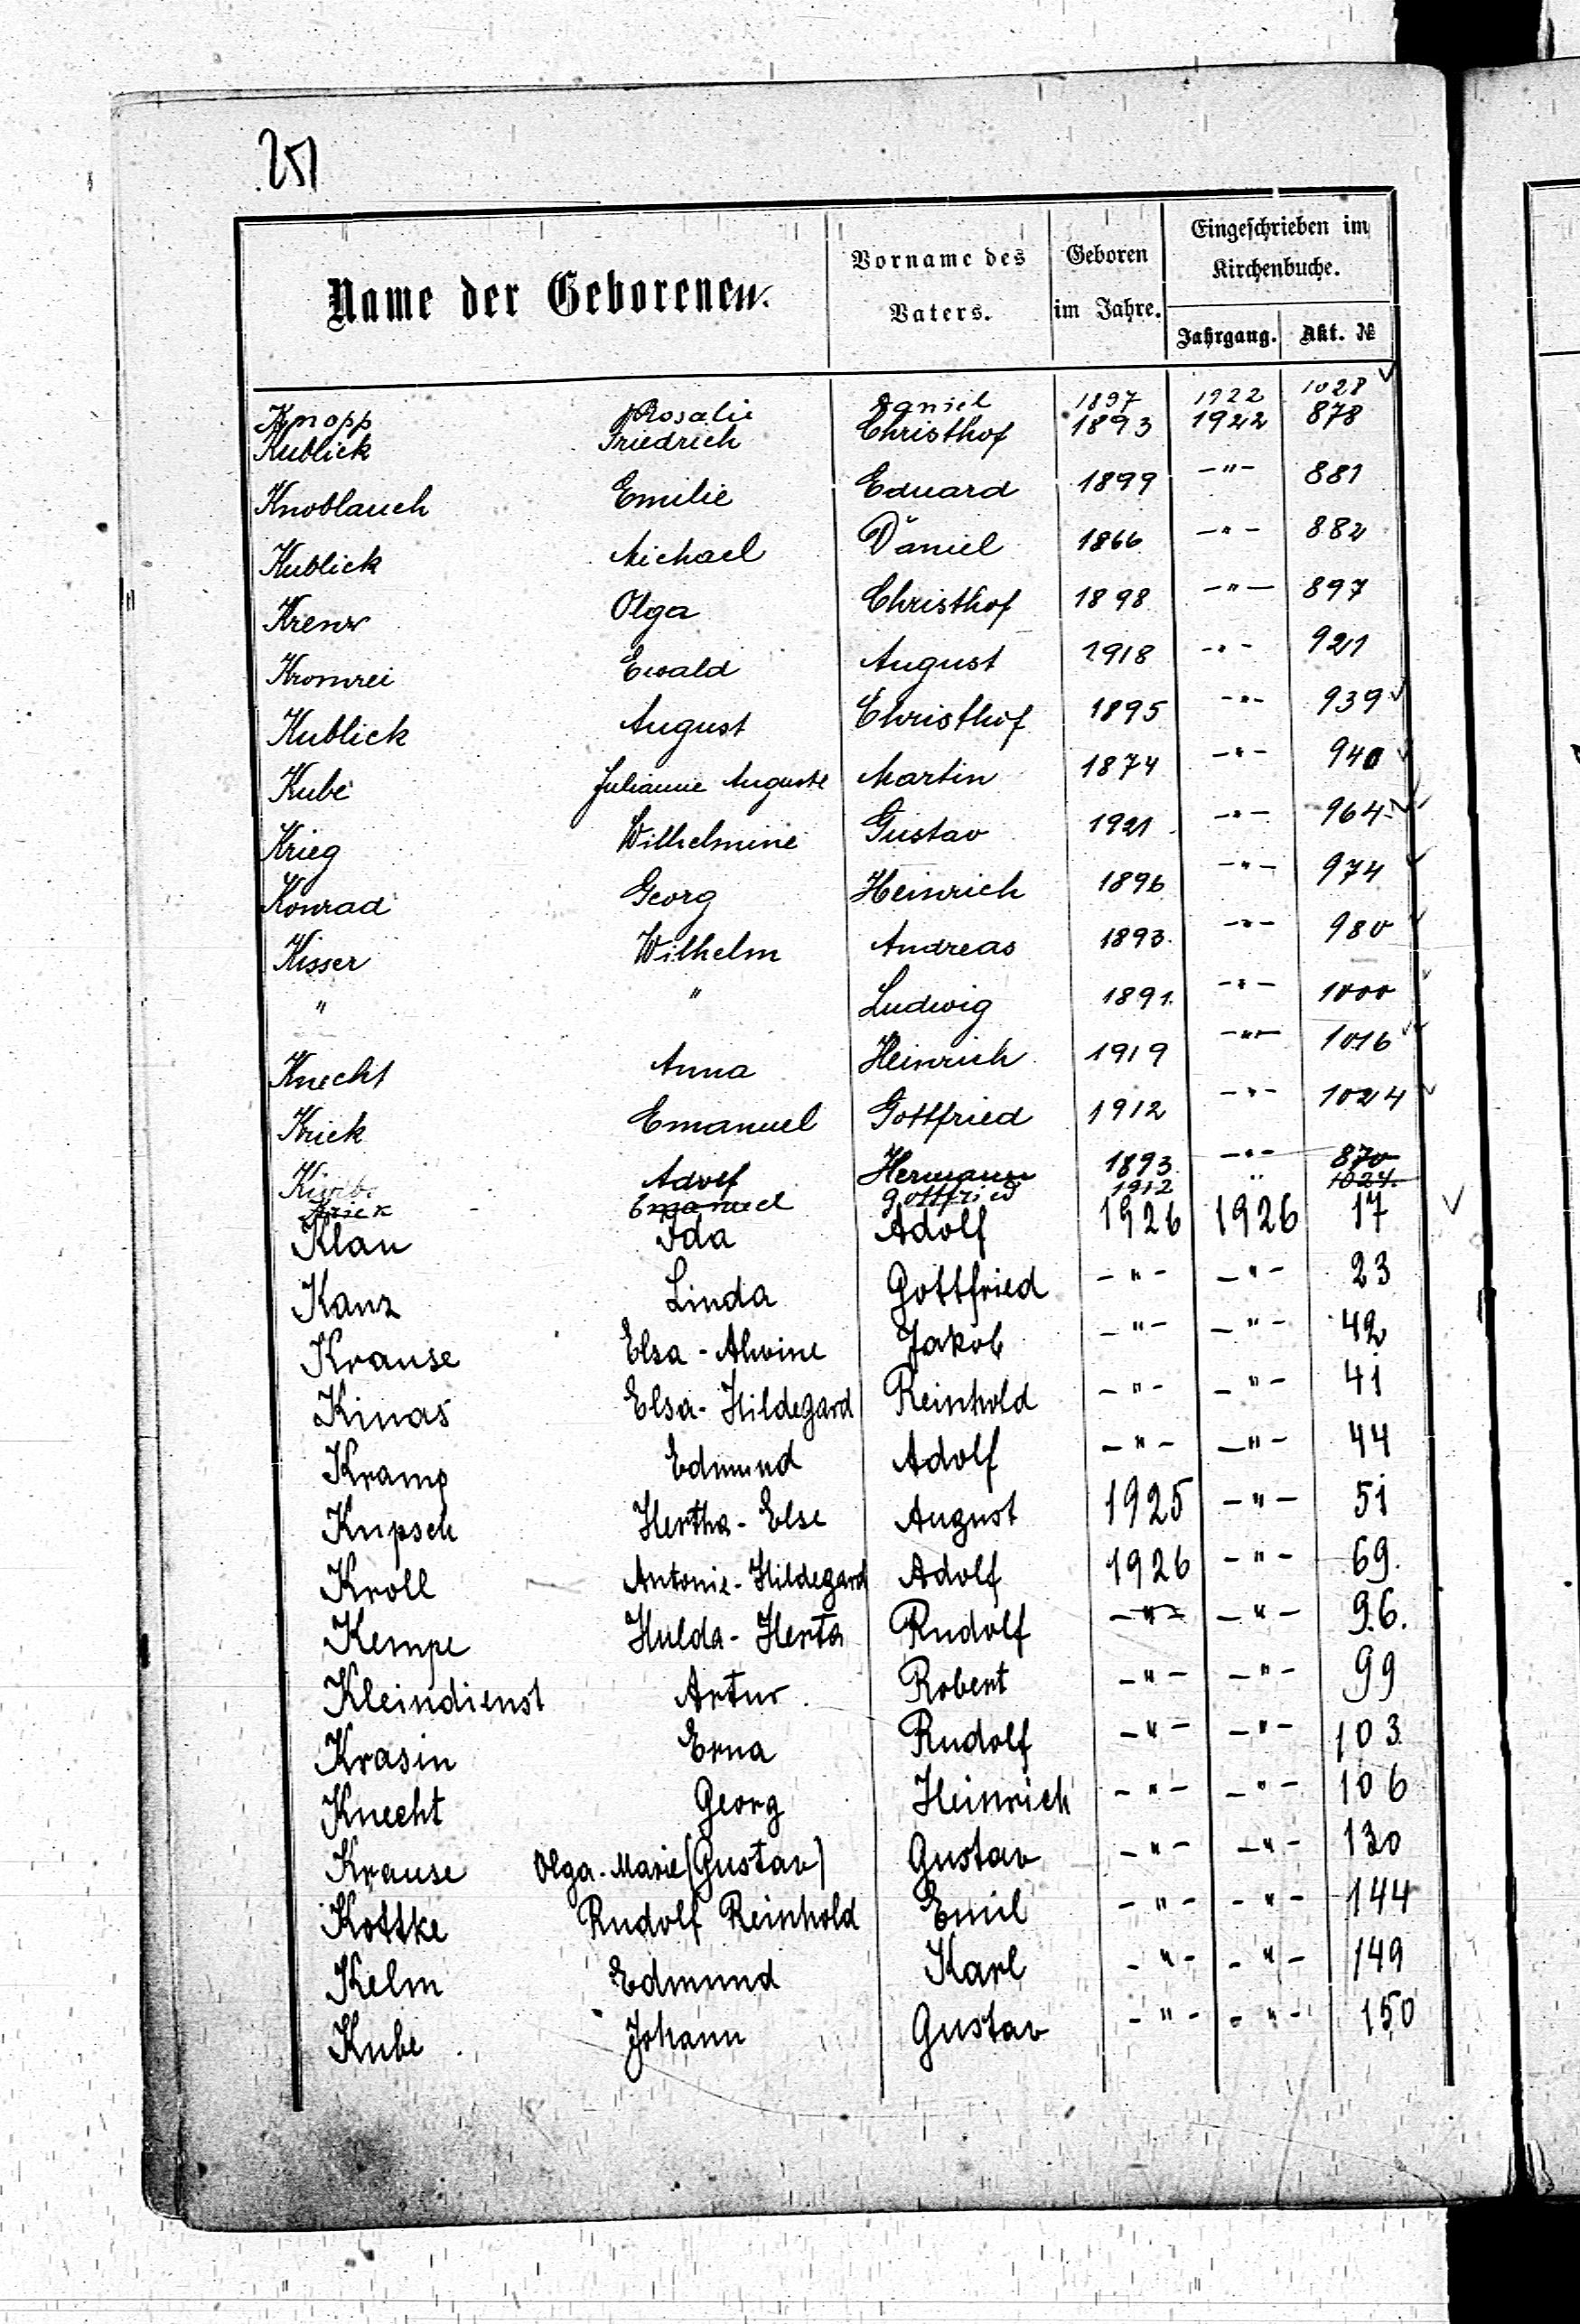 251
Name der Geborenen.
Vorname des Vaters.
Geboren im Jahre.
Eingeschrieben im Kirchenbuche.
Jahrgang. Akt. №
Knopp Rosalie Daniel 1897 1922 1028 ✓
Kublick Friedrich Christhof 1893 1922 878
Knoblauch Emilie Eduard 1899 -"- 881
Kublick Michael Daniel 1866 -"- 882
Krenz Olga Christhof 1898 -"- 897
Kromrei Ewald August 1918 -"- 921
Kublick August Christhof 1895 -"- 939 ✓
Kube Julianne Auguste Martin 1874 -"- 940 ✓
Krieg Wilhelmine Gustav 1921 -"- 964 ✓
Konrad Georg Heinrich 1896 -"- 974 ✓
Kisser Wilhelm Andreas 1893 -"- 980 ✓
" " Ludwig 1891 -"- 1000 ✓
Knecht Anna Heinrich 1919 -"- 1016 ✓
Krick Emanuel Gottfried 1912 -"- 1024 ✓
Adolf Hermann 1893 -"- 870
Krick Emanuel Gottfried 1912 " 1024
Klau Ida Adolf 1926 1926 17 ✓
Kanz Linda Gottfried -"- -"- 23
Krause Elsa-Alwine Jakob -"- -"- 42
Kinas Elsa-Hildegard Reinhold -"- -"- 41
Kramp Edmund Adolf -"- -"- 44
Kupsch Hertha-Else August 1925 -"- 51
Kroll Antonie-Hildegard Adolf 1926 -"- 69.
Kempe Hulda-Herta Rudolf -"- -"- 96.
Kleindienst Artur Robert -"- -"- 99
Krasin Erna Rudolf -"- -"- 103
Knecht Georg Heinrich -"- -"- 106
Krause Olga-Marie (Gustav) Gustav -"- -"- 130
Kottke Rudolf Reinhold Emil -"- -"- 144
Kelm Edmund Karl -"- -"- 149
Kube Johann Gustav -"- -"- 150